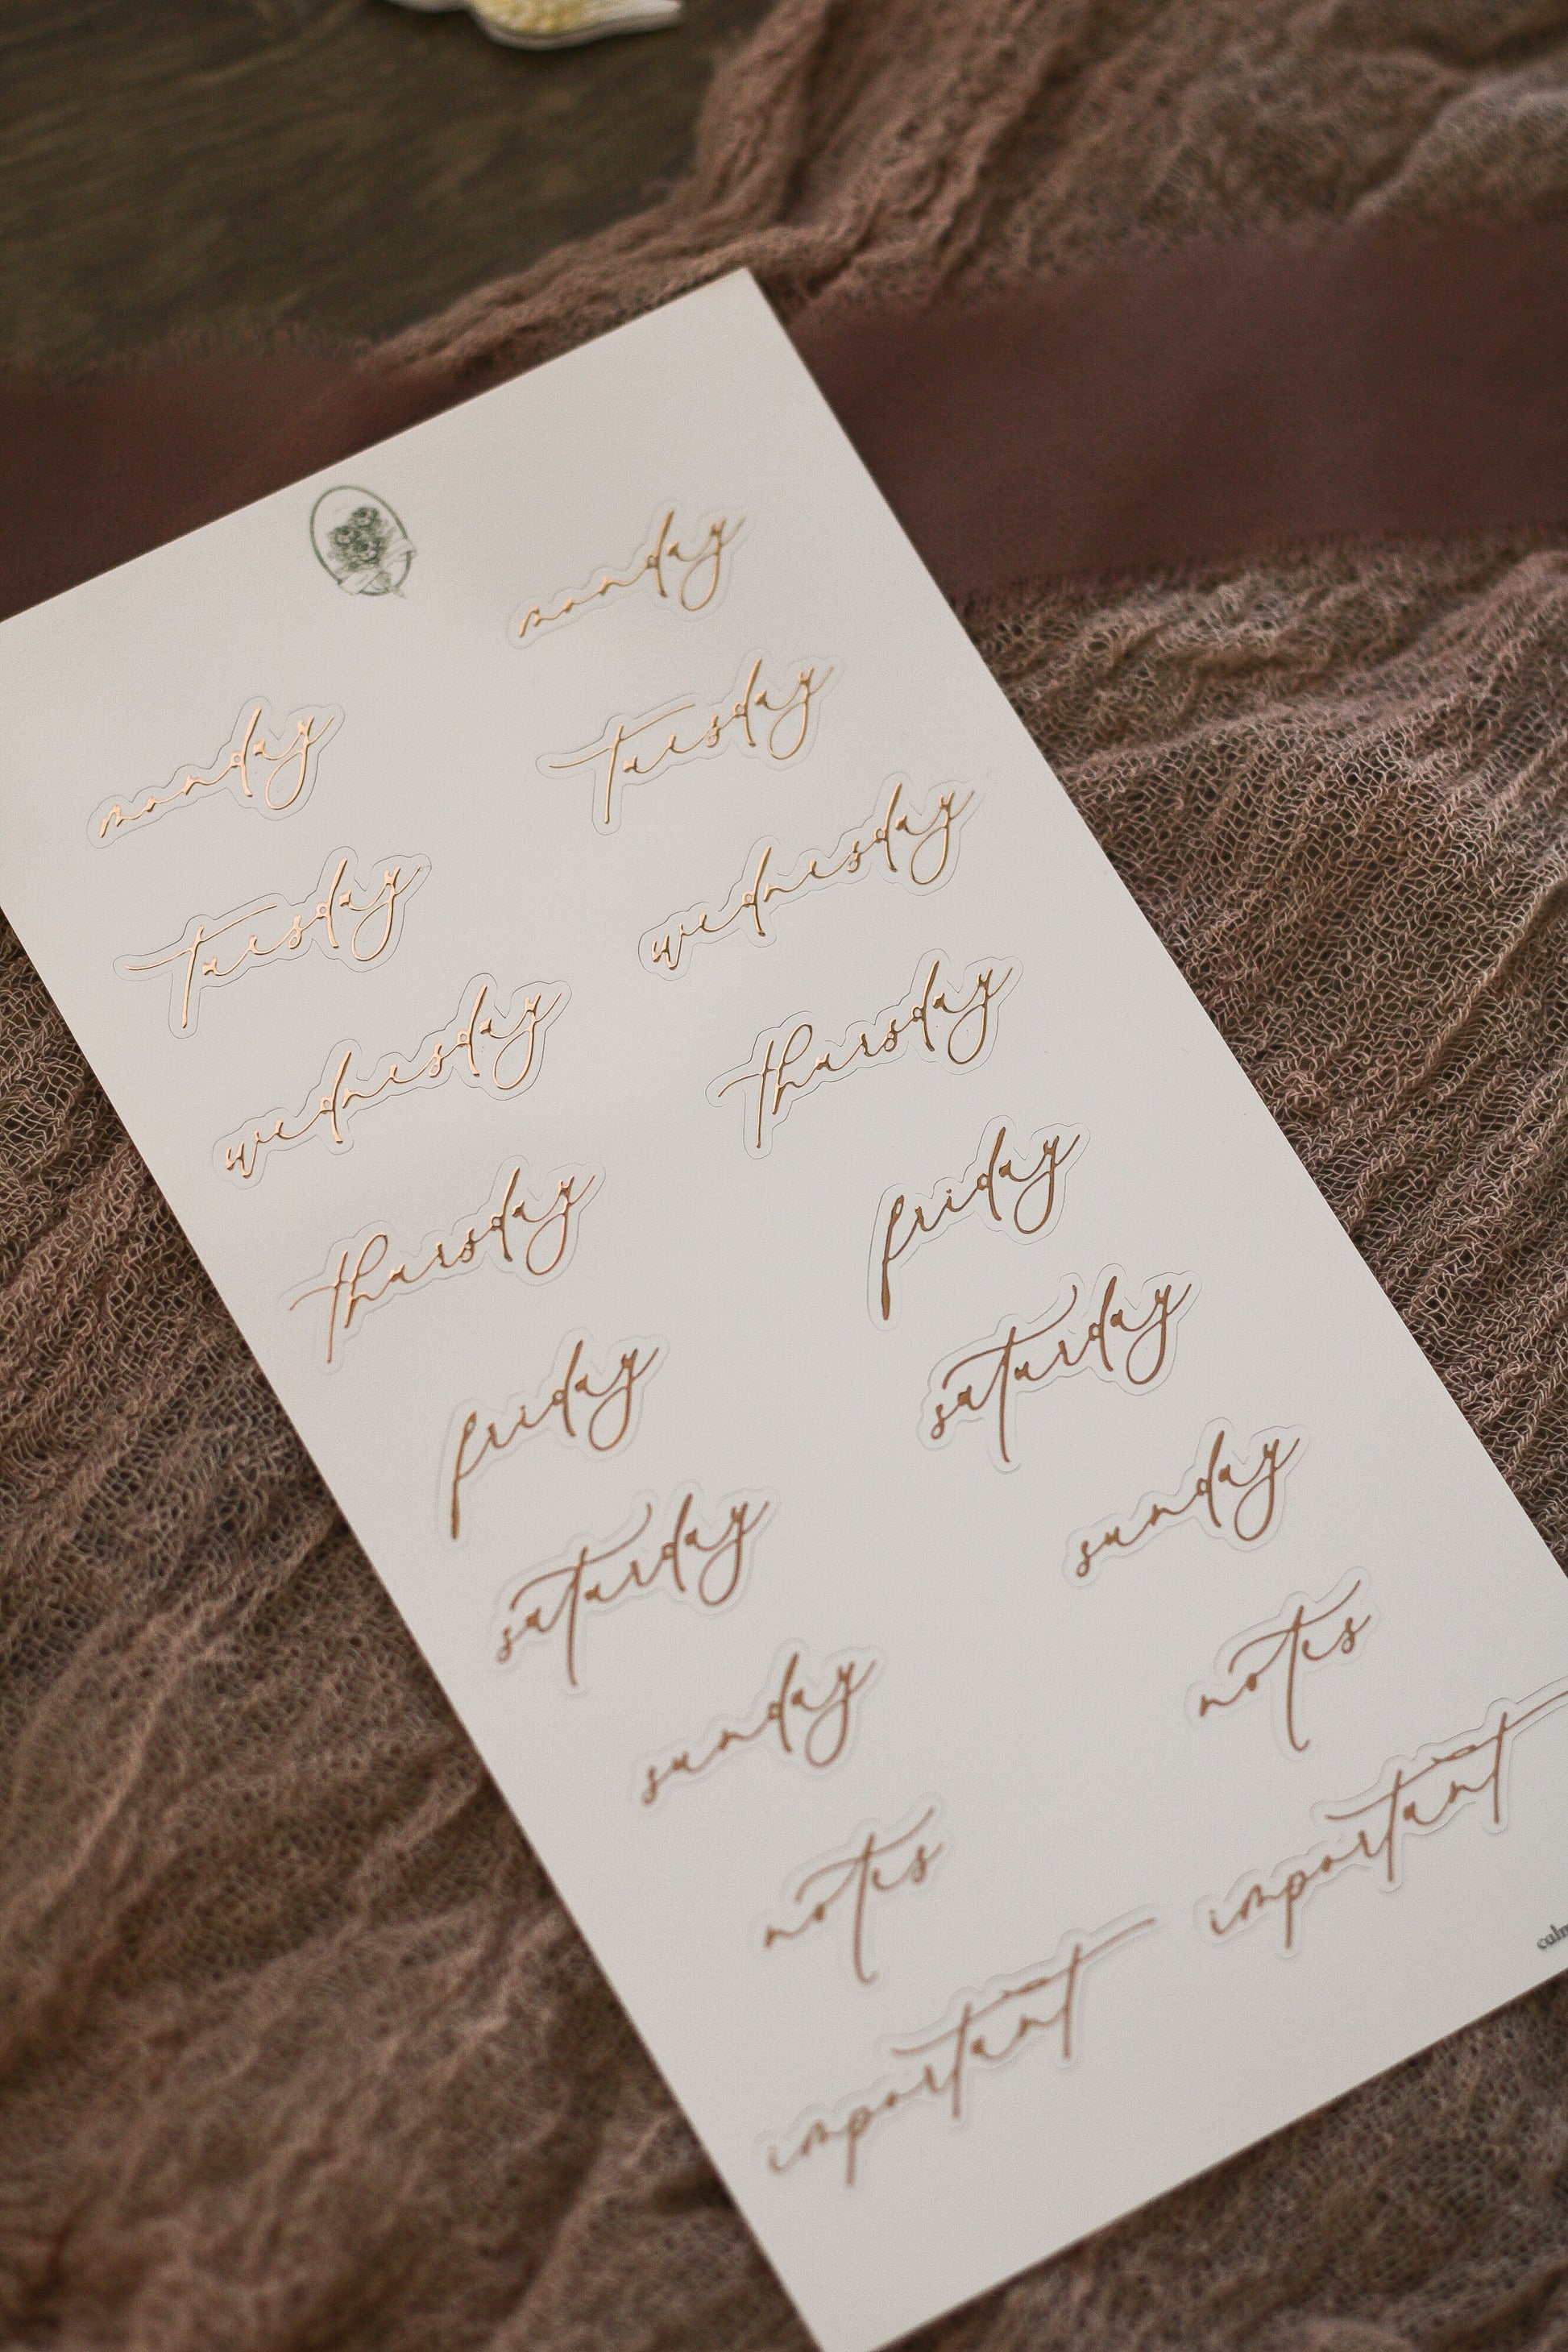 monday
tuesday
wednesday
thursday
friday
saturday
sunday
notes
important
monday
tuesday
wednesday
thursday
friday
saturday
sunday
notes
important